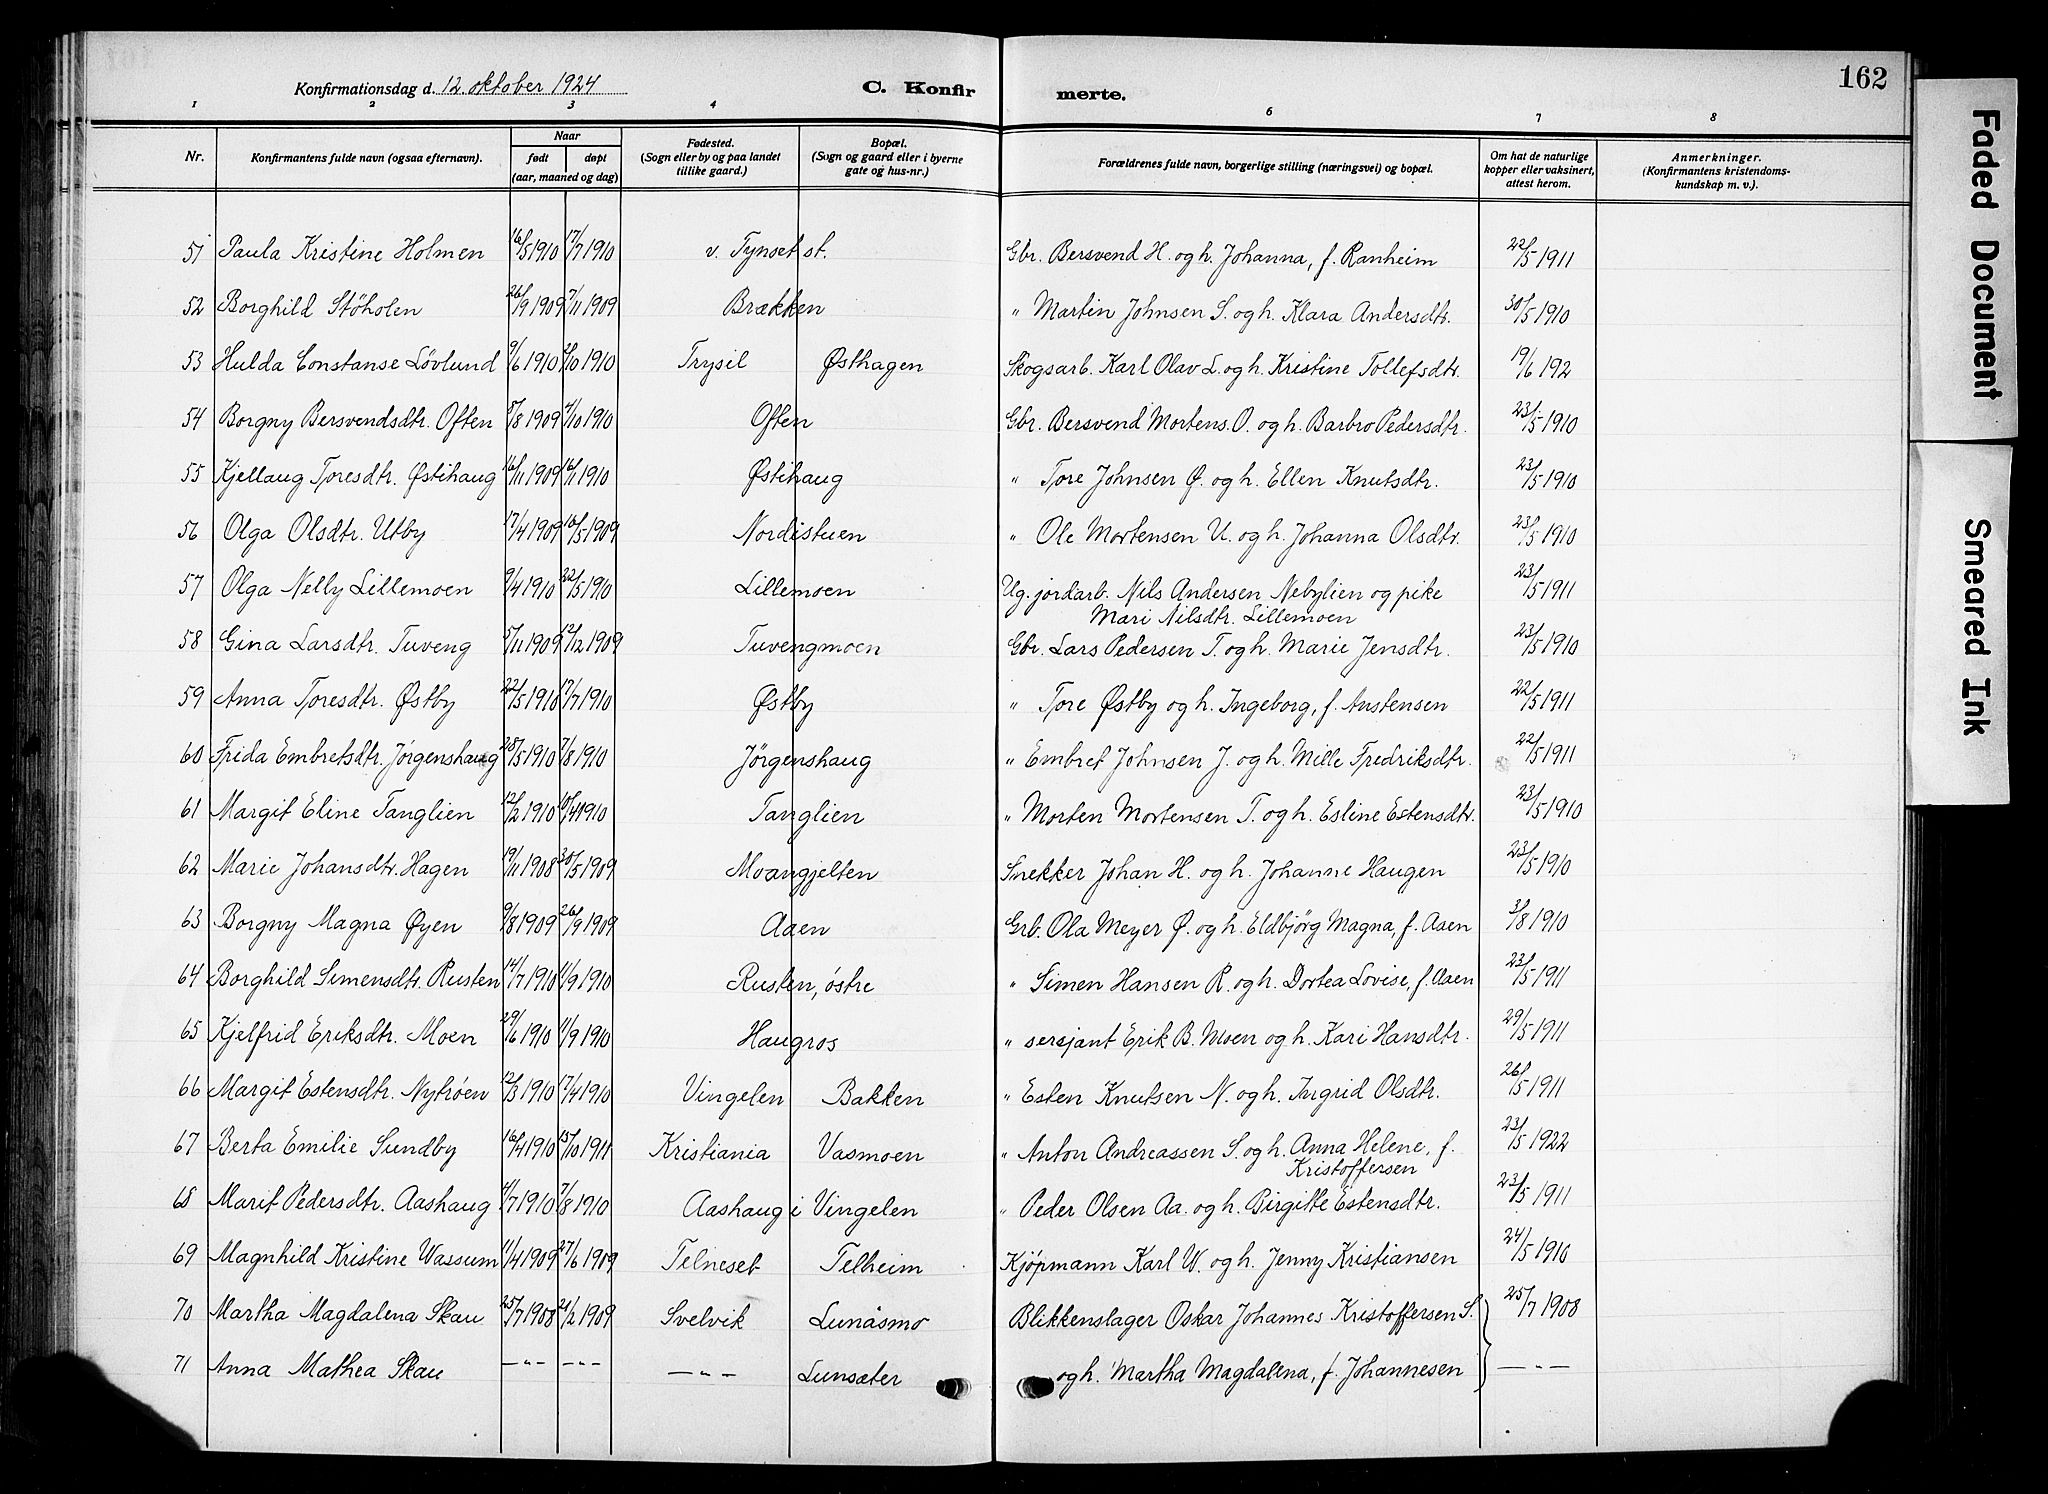 162
Konfirmationsdag d. 12. oktober 1924 C. Konfir merte.
1 2 3 4 5 6 7 8
Nr. Konfirmantens fulde navn (ogsaa efternavn). Naar født døpt (aar, maaned og dag) Fødested. (Sogn eller by og paa landet tillike gaard.) Bopæl. (Sogn og gaard eller i byerne gate og hus-nr.) Forældrenes fulde navn, borgerlige stilling (næringsvei) og bopæl. Om hat de naturlige kopper eller vaksinert, attest herom. Anmerkninger. (Konfirmantens kristendoms-kundskap m. v.).
51 Paula Kristine Holmen 16/5 1910 17/7 1910 v. Tynset st. Gbr. Bersvend H. og h. Johanna, f. Ranheim 22/5 1911
52 Borghild Stöholen 26/9 1909 7/11 1909 Brækken " Martin Johnsen S. og h. Klara Andersdtr. 30/5 1910
53 Hulda Constanse Lövlund 9/6 1910 2/10 1910 Trysil Østhagen Skogsarb. Karl Olav L. og h. Kristine Tollefsdtr. 19/6 192
54 Borgny Bersvendsdtr. Often 8/8 1909 4/10 1910 Often Gbr. Bersvend Mortens. O. og h. Barbro Pedersdtr. 23/5 1910
55 Kjellaug Toresdtr. Østihaug 16/11 1909 16/1 1910 Østihaug " Tore Johnsen Ø. og h. Ellen Knutsdtr. 23/5 1910
56 Olga Olsdtr. Utby 17/4 1909 16/5 1909 Nordistuen " Ole Mortensen U. og h. Johanna Olsdtr. 23/5 1910
57 Olga Nelly Lillemoen 9/4 1910 22/5 1910 Lillemoen Ug. jordarb. Nils Andersen Nebylien og pike 23/5 1911
Mari Nilsdtr. Lillemoen
58 Gina Larsdtr. Tuveng 5/11 1909 12/12 1909 Tuvengmoen Gbr. Lars Pedersen T. og h. Marie Jensdtr. 23/5 1910
59 Anna Toresdtr. Østby 22/5 1910 17/7 1910 Østby " Tore Østby og h. Ingeborg, f. Austensen 22/5 1911
60 Frida Embretsdtr. Jørgenshaug 28/5 1910 7/8 1910 Jörgenshaug " Embret Johnsen J. og h. Mille Fredriksdtr. 22/5 1911
61 Margit Eline Tanglien 12/2 1910 10/4 1910 Tanglien " Morten Mortensen T. og h. Esline Estensdtr. 23/5 1910
62 Marie Johansdtr. Hagen 19/11 1908 30/5 1909 Moangjelten Snekker Johan H. og h. Johanne Haugen 23/5 1910
63 Borgny Magna Øyen 9/8 1909 26/9 1909 Aaen Grb. Ola Meyer Ø. og h. Eldbjørg Magna, f. Aaen 3/8 1910
64 Borghild Simensdtr. Rusten 14/7 1910 11/9 1910 Rusten, östre " Simen Hansen R. og h. Dortea Lovise, f. Aaen 23/5 1911
65 Kjelfrid Eriksdtr. Moen 29/6 1910 11/9 1910 Haugros " sersjant Erik B. Moen og h. Kari Hansdtr. 29/5 1911
66 Margit Estensdtr. Nytröen 12/3 1910 17/4 1910 Vingelen Bakken " Esten Knutsen N. og h. Ingrid Olsdtr. 26/5 1911
67 Berta Emilie Sundby 16/4 1910 15/10 1911 Kristiania Vasmoen " Anton Andreassen S. og h. Anna Helene, f. 23/5 1922
Kristoffersen
68 Marit Pedersdtr. Aashaug 4/7 1910 7/8 1910 Aashaug i Vingelen " Peder Olsen Aa. og h. Birgitte Estensdtr. 23/5 1911
69 Magnhild Kristine Wassum 11/4 1909 27/6 1909 Telneset Telheim Kjöpmann Karl W. og h. Jenny Kristiansen 24/5 1910
70 Martha Magdalena Skau 25/7 1908 21/2 1909 Svelvik Lunåsmo Blikkenslager Oskar Johannes Kristoffersen S. 25/7 1908
71 Anna Mathea Skau —"— —"— —"— Lunsæter og h. Martha Magdalena, f. Johannesen —"—
Faded Document
Smeared Ink